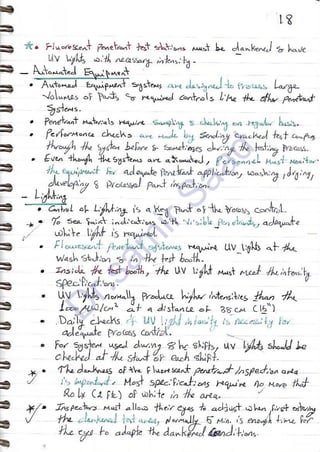 18
* • Fluorescent Penetrant test stations must be darkened & have
UV lights with necessary intensity.
- Automated Equipment
• Automed Equipment Systems are designed to process Large
Volumes of Parts, So required controls like the other penetrant
Systems.
• Penetrant materials require Sampling & checking on regular basis.
• Performance checks are made by Sending Cracked test
through the system before & Sometimes during the testing Process.
• Even though the systems are automated, Personnel Must Monitor
the equipment for adequate Penetrant application, washing, drying,
developing & Processed Part inspection.
- Lighting
• Control of Lighting is a Key Part of the Process control.
• To See faint indications with visible penetrants, adequate
white light is required.
• Fluorescent penetrant systems require UV lights at the
Wash station & in the test booth.
• Inside the test booth, the UV light must meet the intensity
Specifications
• UV lights normally Produce higher intensities than the
at a distance of 38 CM (15")
• Daily checks of UV light intensity is necessity for
adequate Process control.
• For System used during 8 hr Shifts, UV lights should be
checked at the start of each Shift.
* • The darkness of the Fluorescent penetrant Inspection area
is important. Most specifications require no more that
lx (2 ) of white in the area.
* • Inspectors must allow their eyes to adjust when first entering
the darkened test area, Normally 5 Min. is enough time for
the eye to adapte the darkened Conditions.